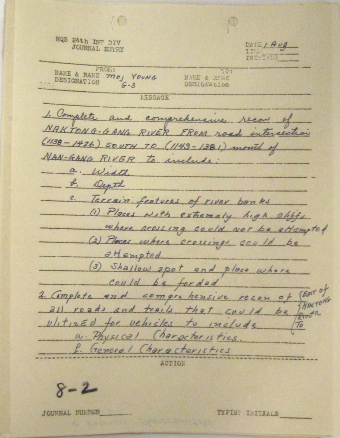 HQS 24th INF DIV
JOURNAL ENTRY
DATE 1 Aug
FROM: TO:
NAME & RANK Maj Young NAME & RANK
DESIGNATION G-3 DESIGNATION
MESSAGE
1. Complete and comprehensive recon of
NAKTONG-GANG RIVER FROM road intersection
(1138-1476) SOUTH TO (1143-1381) mouth of
NAN-GANG RIVER to include:
a. Width
b. Depth
c. Terrain features of river banks
(1) Places with extremely high cliffs
where crossing could not be attempted
(2) Places where crossings could be
attempted
(3) Shallow spot and place where
could be forded
2. Complete and comprehensive recon of
all roads and trails that could be
utilized for vehicles to include
East of
NAKTONG
River
To
a. Physical Characteristics.
b. General Characteristics
ACTION
8-2
JOURNAL NUMBER TYPISTS INITIALS